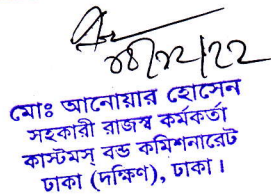 ০৪/১২/২২
মোঃ আনোয়ার হোসেন
সহকারী রাজস্ব কর্মকর্তা
কাস্টমস্ বন্ড কমিশনারেট
ঢাকা (দক্ষিণ), ঢাকা।